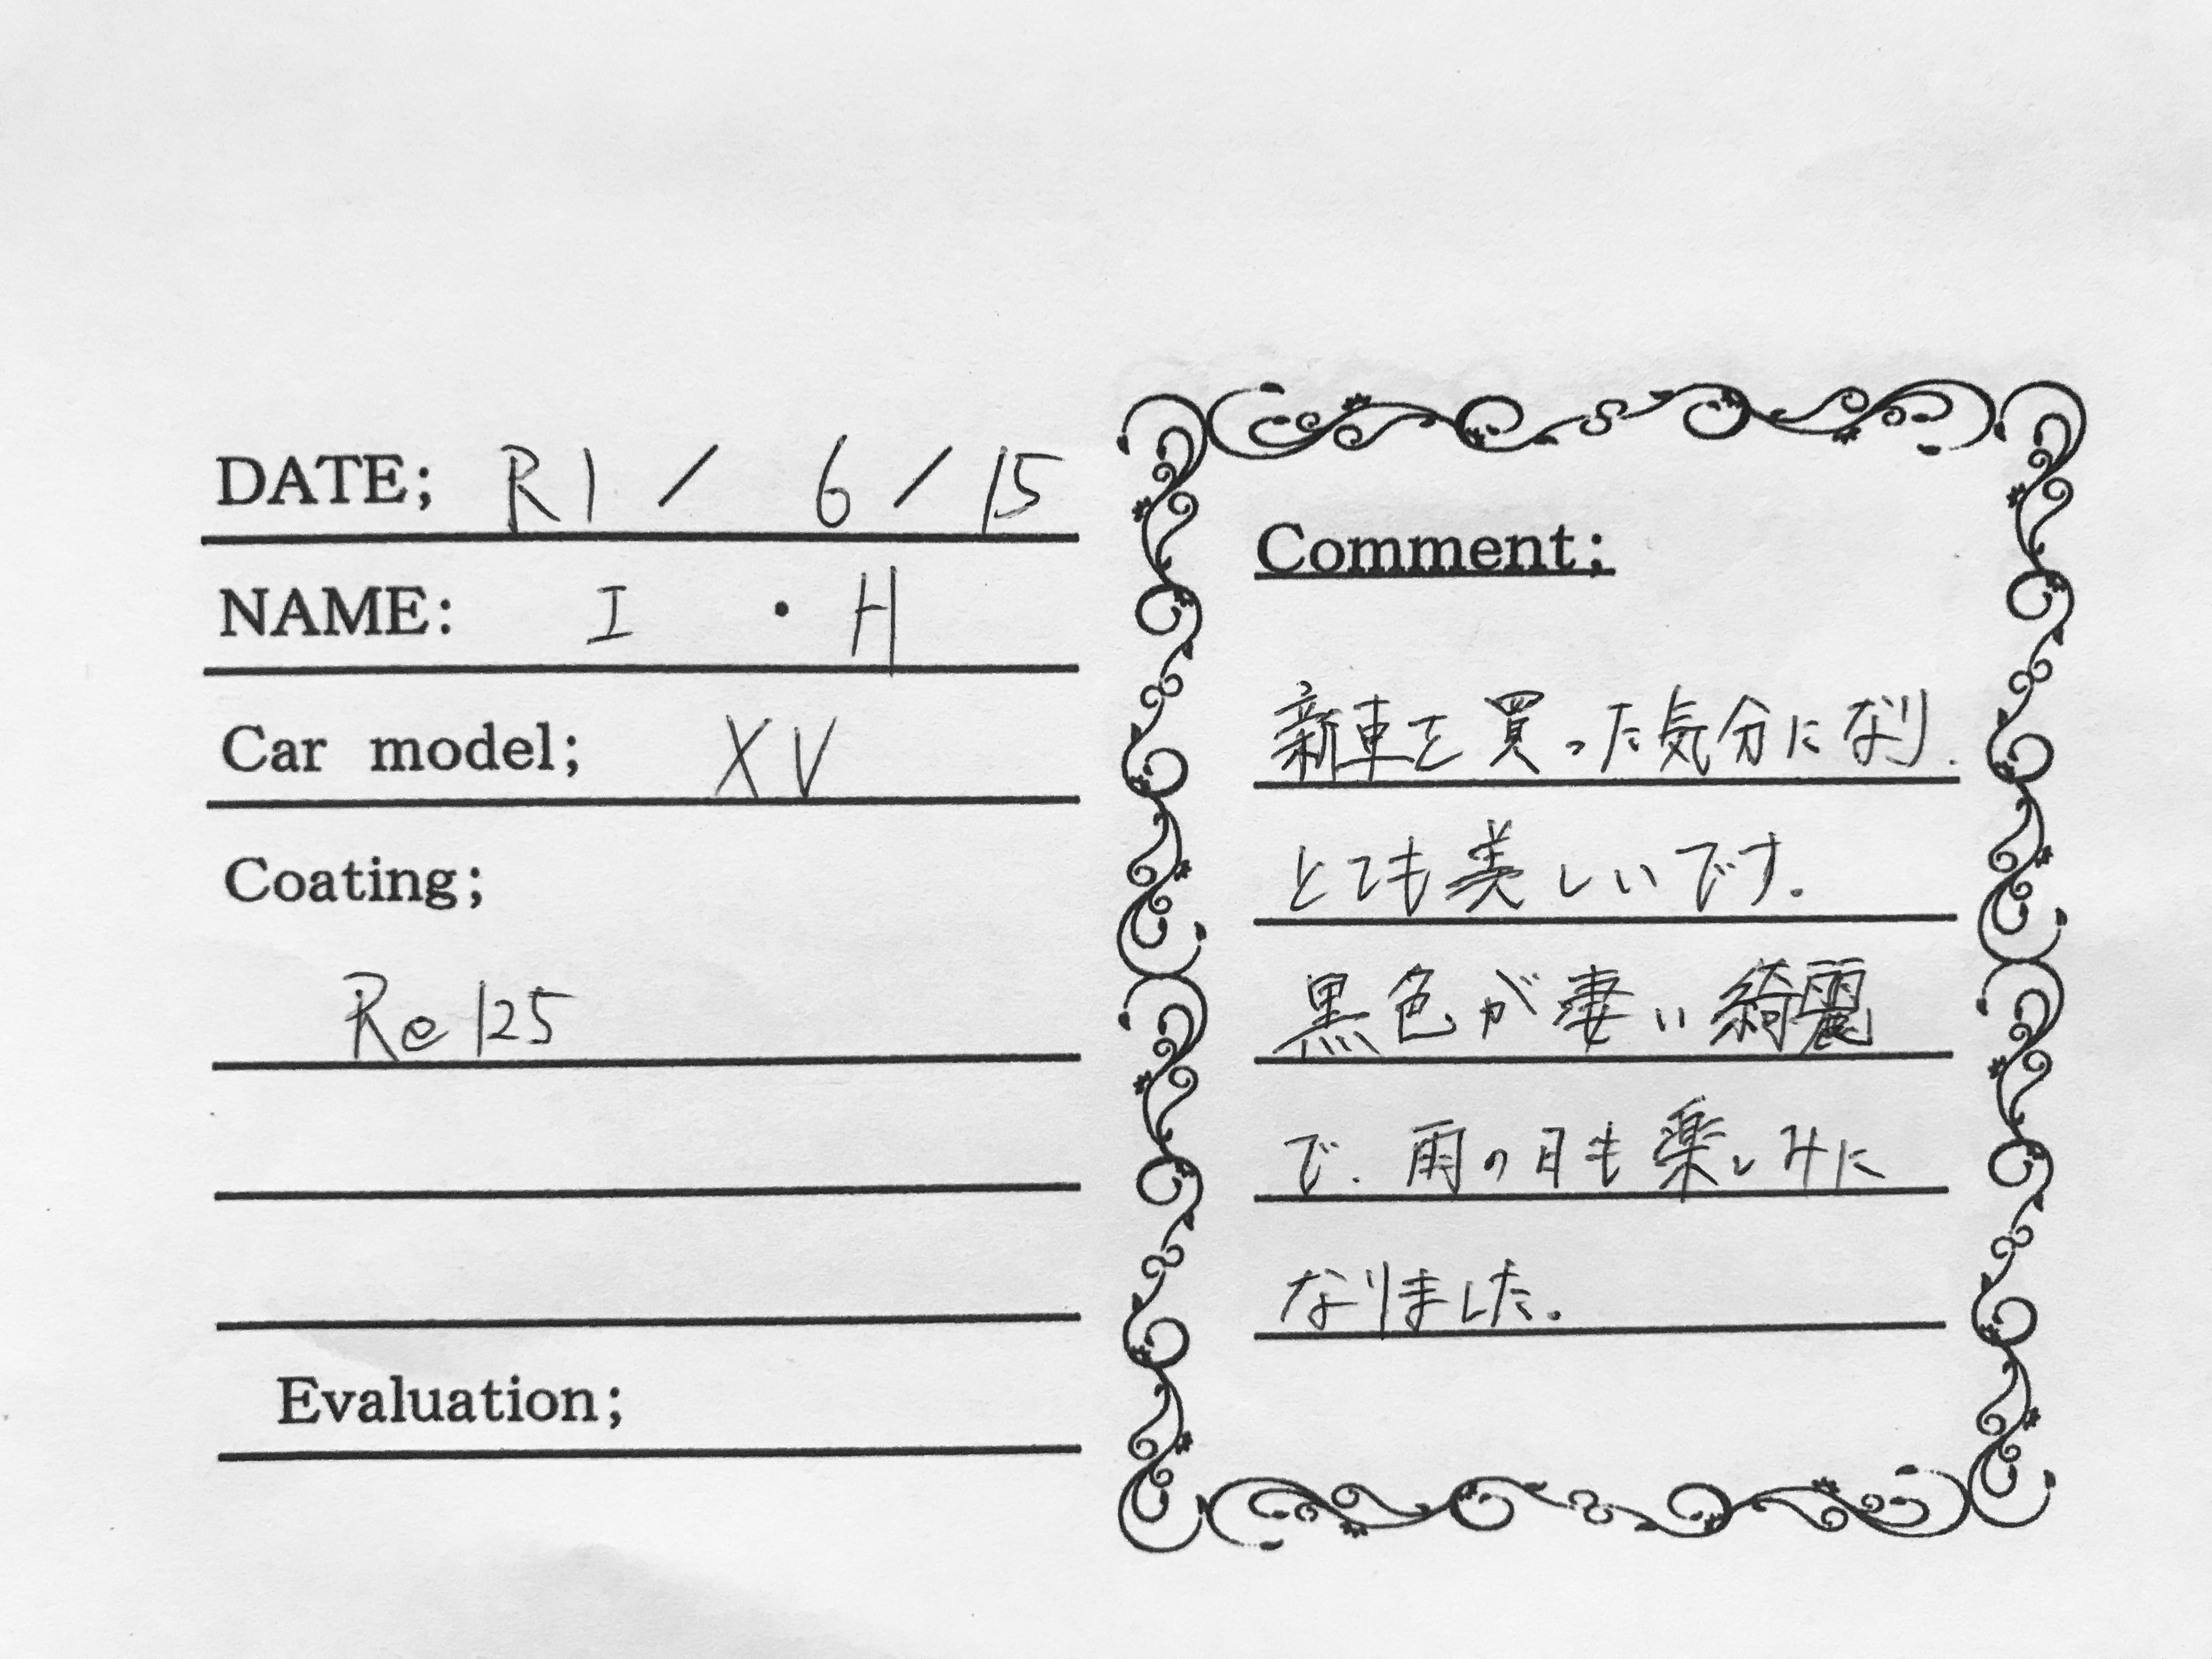 DATE; R1 / 6 / 15
NAME: I ・ H
Car model; XV
Coating;
Re125
Evaluation;
Comment;
新車を買った気分になり.
とても美しいです.
黒色が凄い綺麗
で. 雨の日も楽しみに
なりました.